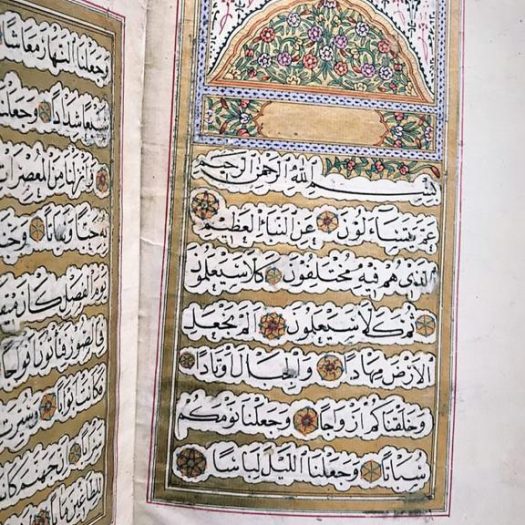 بسم الله الرحمن الرحيم
عم يتساءلون عن النبأ العظيم
الذي هم فيه مختلفون كلا سيعلمون
ثم كلا سيعلمون ألم نجعل
الأرض مهادا والجبال أوتادا
وخلقناكم أزواجا وجعلنا نومكم
سباتا وجعلنا الليل لباسا
وجعلنا النهار معاشا
سبعا شدادا وجعلنا
وأنزلنا من المعصرات
حبا ونباتا
يوم الفصل كان
في الصور فتأتون
فكانت أبوابا وسيرت
سرابا إن جهنم كانت
للطاغين مآبا